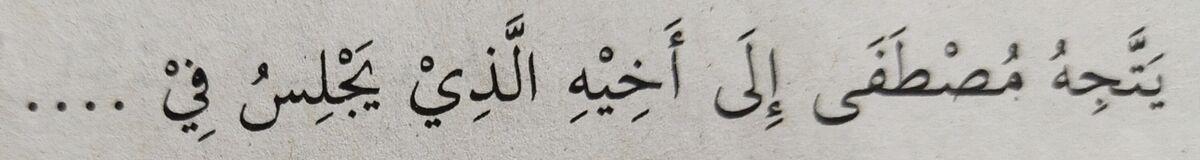 يَتَّجِهُ مُصْطَفَى إِلَى أَخِيْهِ الَّذِيْ يَجْلِسُ فِيْ ....